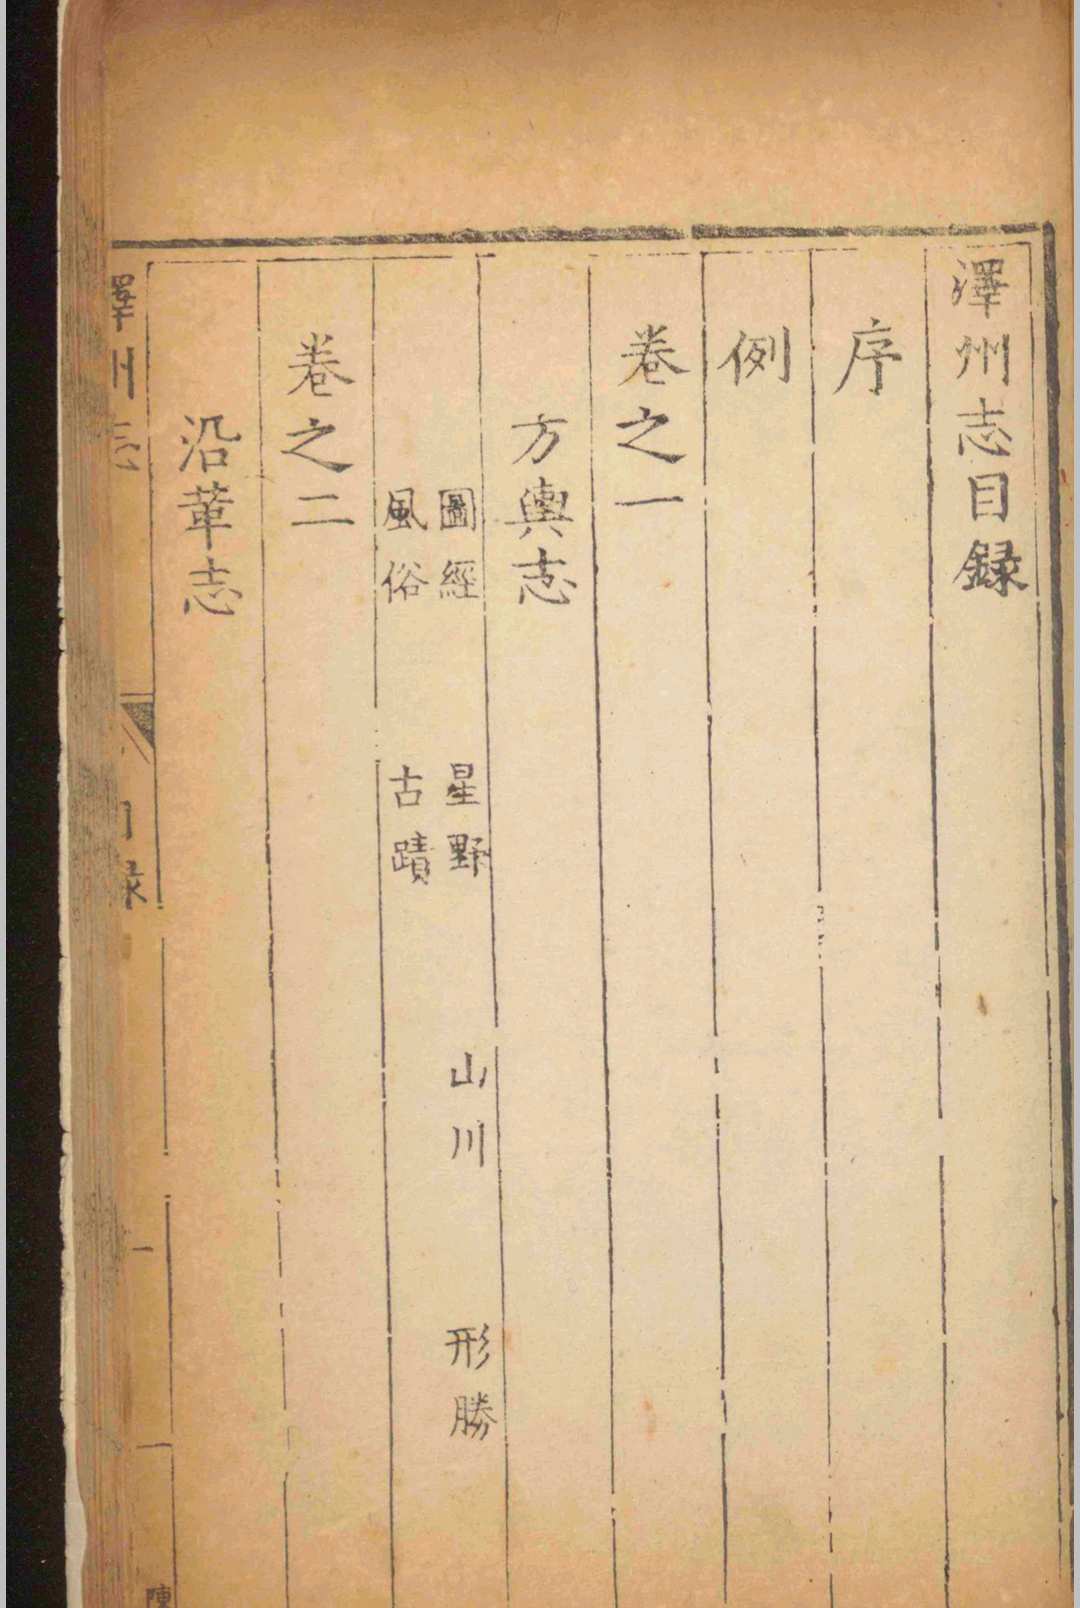 澤州志目録
序
例
卷之一
方輿志
圖經 星野 山川 形勝
風俗 古蹟
卷之二
沿革志
澤州志 目録 一 陳